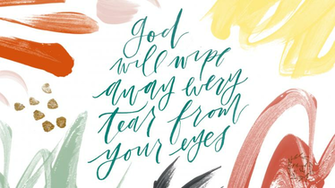 God
will wipe
away every
tear from
your eyes